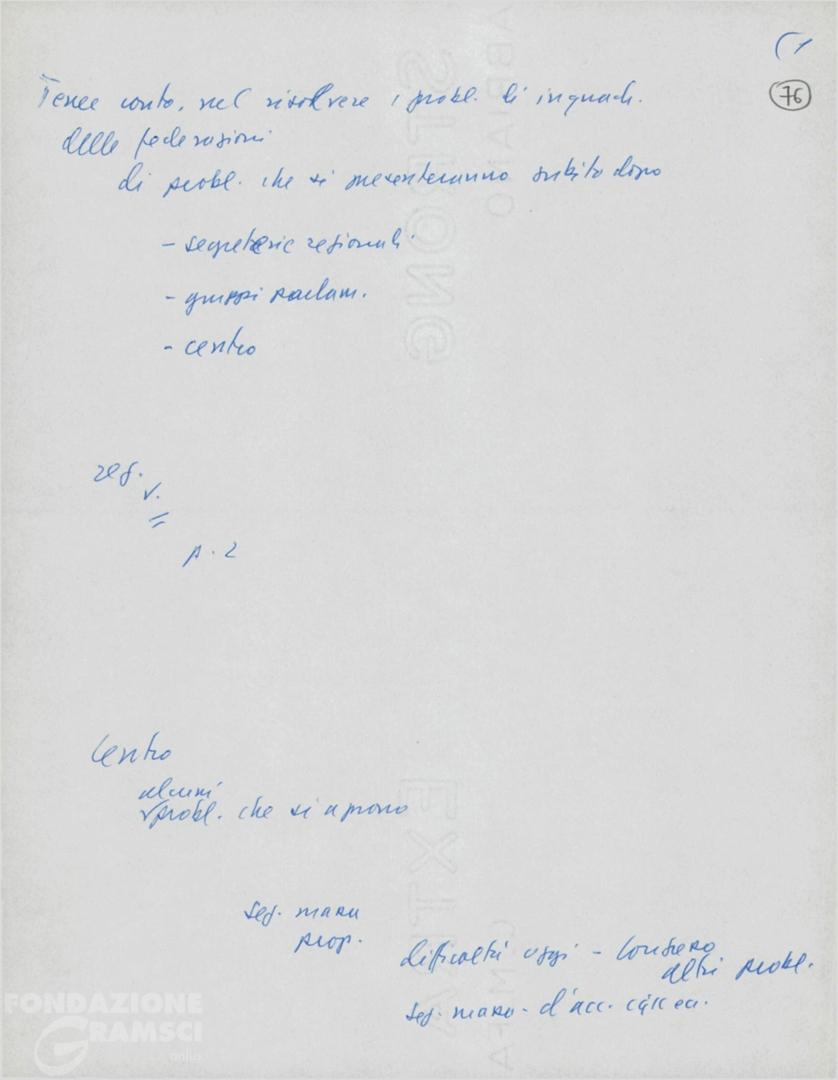 (1
76
Tener conto, nel risolvere i probl. di inquadr.
delle federazioni
di probl. che si presenteranno subito dopo
- segreterie regionali
- gruppi parlam.
- centro
reg.
v.
p. 2
Centro
alcuni
probl. che si aprono
seg.
prop.
difficoltà oggi -
altri probl.
seg. d'acc.
FABRIANO
STRONG
EXTRA
FONDAZIONE
GRAMSCI
onlus